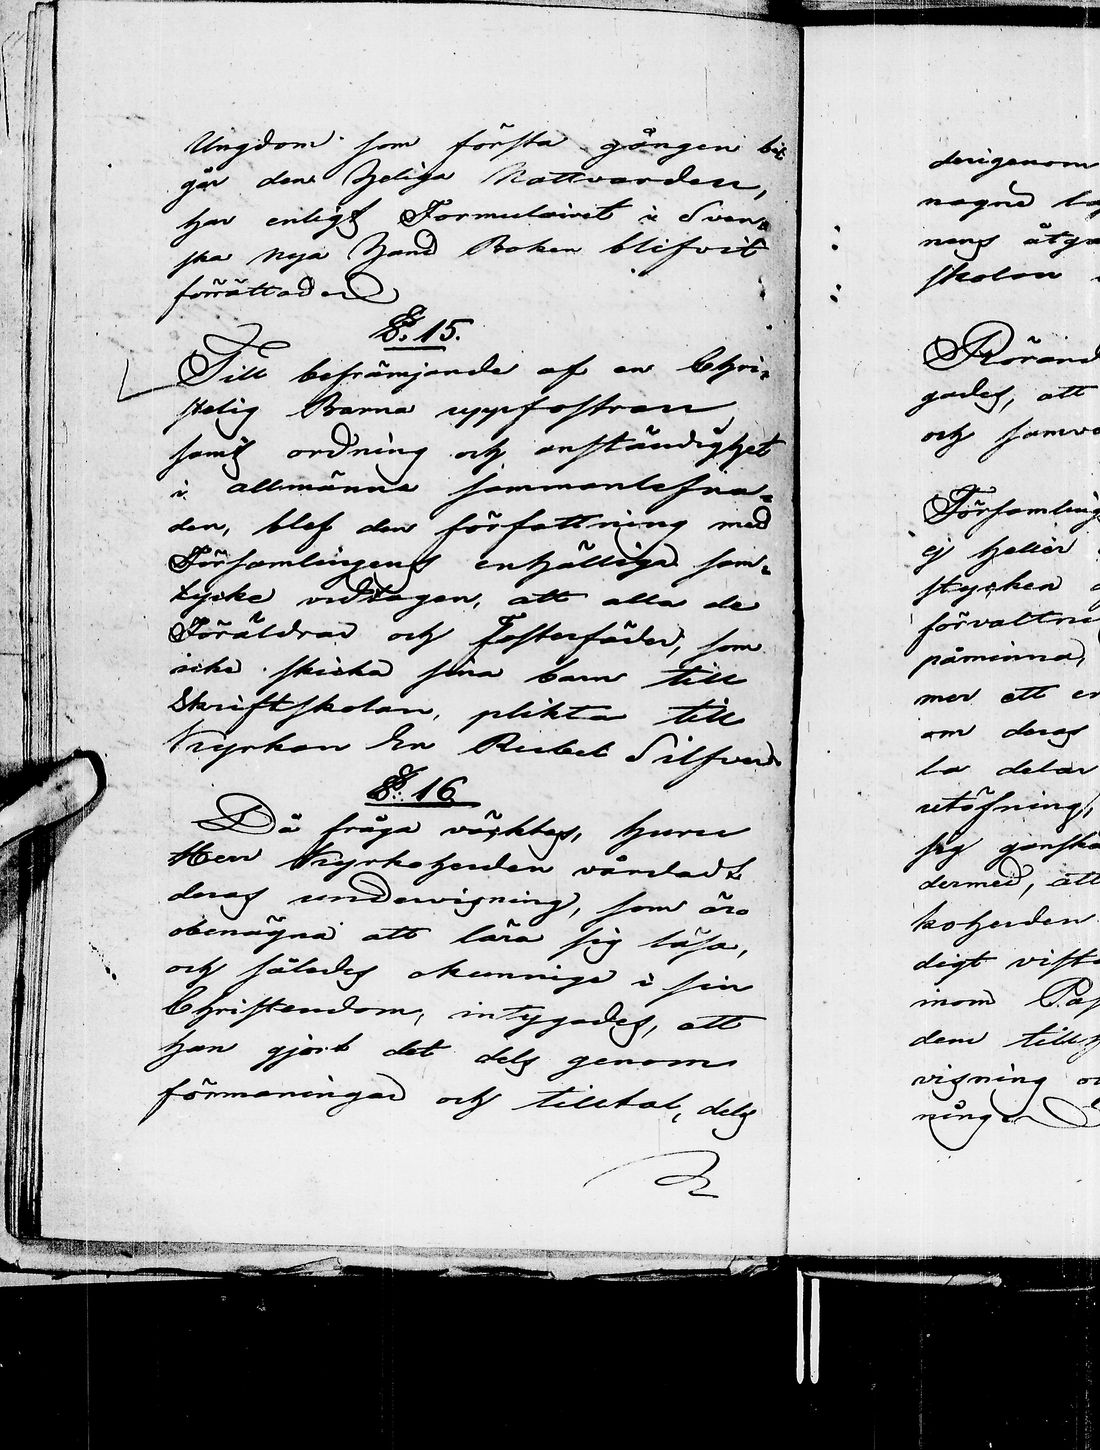 Ungdom som första gången be-
går den Heliga Nattvarden,
har enligt Formulairet i Sven-
ska nya Hand Boken blifvit
förrättad
§. 15.
Till befrämjande af en Chri-
stelig Barna uppfostran
samt ordning och anständighet
i allmänna sammanlefna-
den, blef den författning med
Församlingens enhälliga sam-
tycke vidtagen, att alla de
Föräldrar och Fosterfäder, som
icke skicka sina barn till
Skriftskolan, plikta till
Kyrkan En Rubel Silfver
§. 16
Då fråga väcktes, huru
Herr Kyrkoherden vårdadt
deras undervisning, som äro
obenägna att lära sig läsa,
och således okunniga i sin
Christendom, intygades, att
han gjort det dels genom
förmaningar och tilltal, dels
derigenom
nens åtgä
skolan
Rörand
gades, att
och samva
Församling
ej heller
stycken
förvaltni
påminna,
mer att en
om deras
la delar
utöfning,
sig ganska
dermed, att
koherden
digt vista
inom
dem till
visning oc